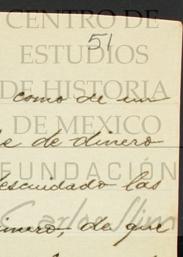 CENTRO DE
51
ESTUDIOS
DE HISTORIA
como de un
DE MEXICO
de dinero
FUNDACIÓN
descuidado las
Carlos Slim
dinero, de que